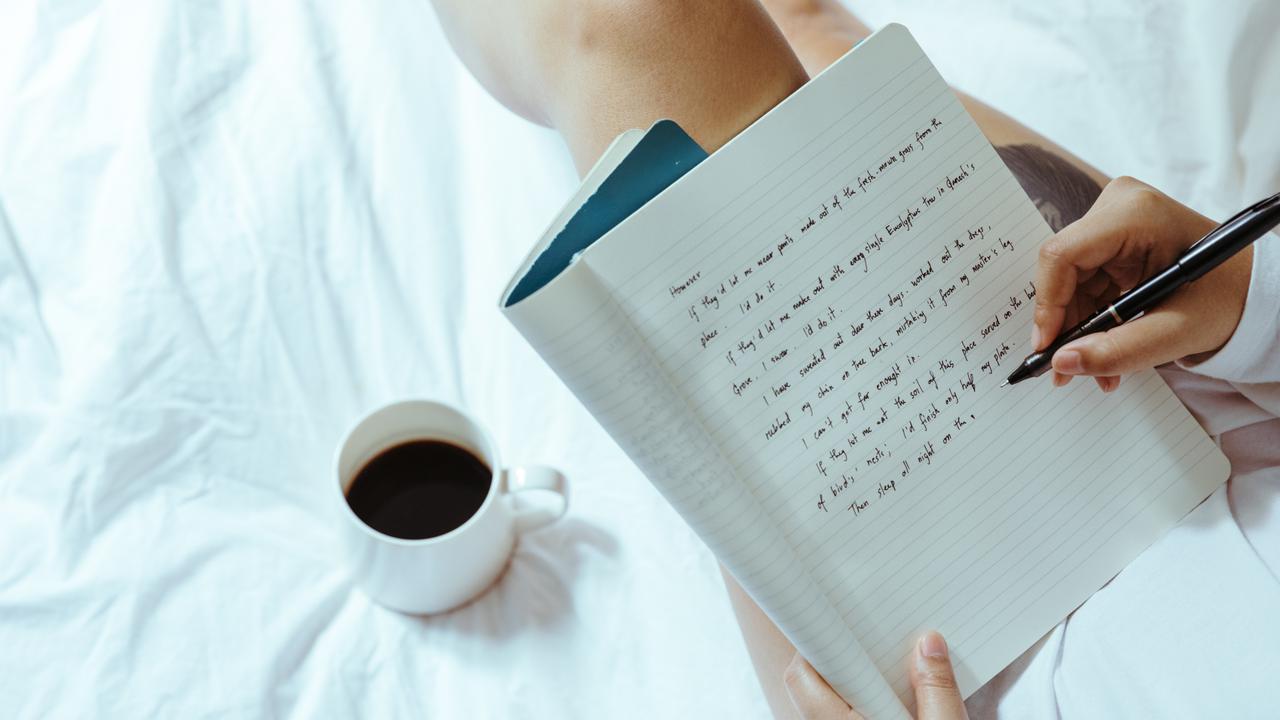 However
If they'd let me wear pants made out of the fresh-mown grass from the
place. I'd do it.
If they'd let me make out with every single Eucalyptus tree in Ganesh's
Grove, I swear. I'd do it.
I have sweated out dew these days. worked out the dregs,
rubbed my chin on tree bark, mistaking it from my master's leg
I can't get far enough it.
If they let me eat the soil of this place served on the bed
of bird's nests; I'd finish only half my plate.
Then sleep all night on the